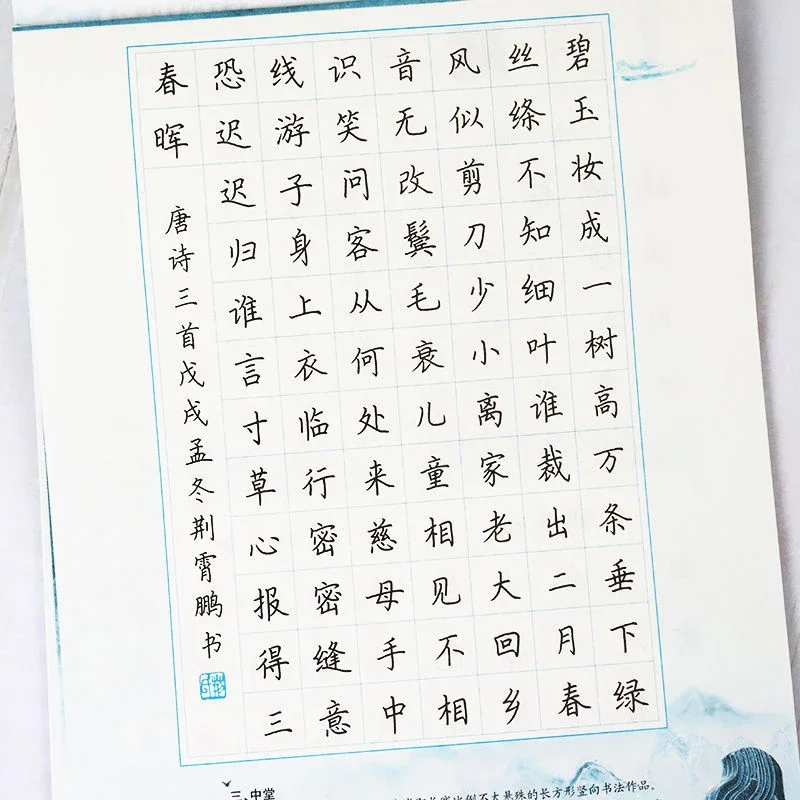 碧玉妆成一树高万条垂下绿
丝绦不知细叶谁裁出二月春
风似剪刀少小离家老大回乡
音无改鬓毛衰儿童相见不相
识笑问客从何处来慈母手中
线游子身上衣临行密密缝意
恐迟迟归谁言寸草心报得三
春晖
唐诗三首戊戌孟冬荆霄鹏书
三、中堂
比例不大悬殊的长方形竖向书法作品。